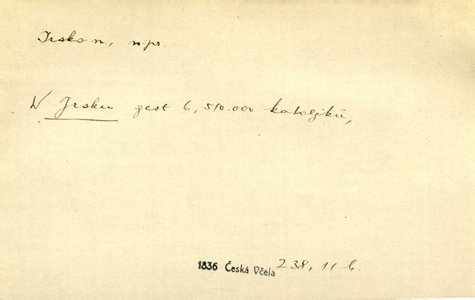 Irsko n., npr.
W Irsku gest 6,510.000 katoljků,
1836 Česká Včela 238, 11 b